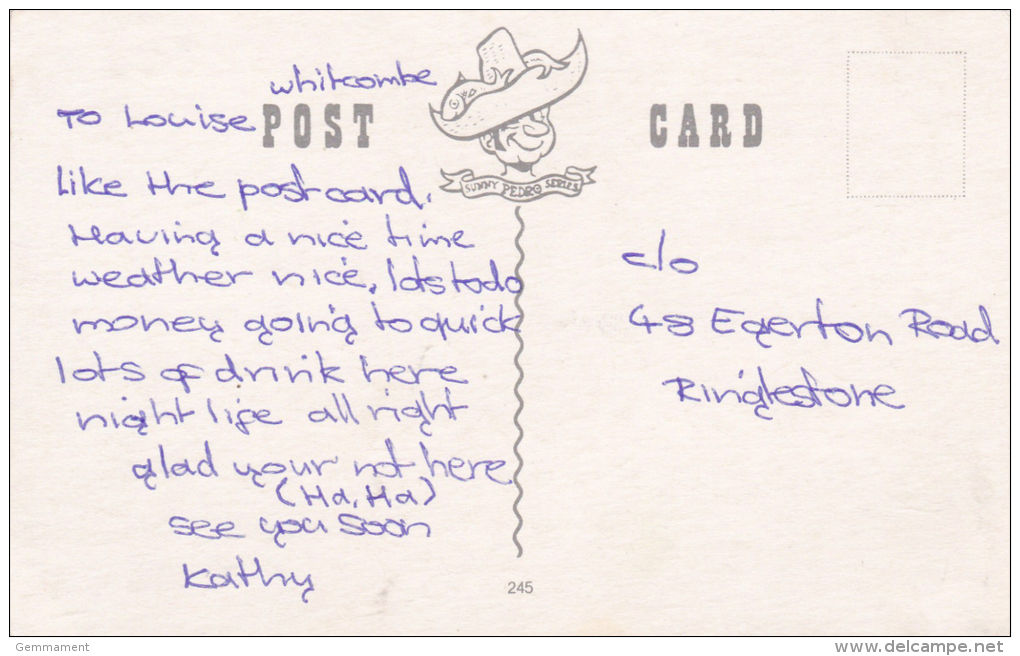 whitcombe
To Louise
POST CARD
SUNNY PEDRO SERIES
like the postcard.
Having a nice time
weather nice, lots to do
money going to quick
lots of drink here
night life all right
glad your not here
(Ha, Ha)
see you soon
Kathy
c/o
48 Egerton Road
Ringlestone
245
Gemmament
www.delcampe.net